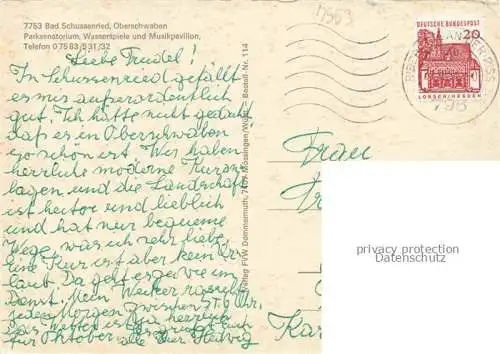 7753 Bad Schussenried, Oberschwaben
Parksanatorium, Wasserspiele und Musikpavillon,
Telefon 07583/531/32
Liebe Trudel!
In Schussenried gefällt
es mir außerordentlich
gut. Ich hätte nicht gedacht,
daß es in Oberschwaben
so schön ist. Wir haben
herrliche moderne Kuran-
lagen und die Landschaft
ist heiter und lieblich
und hat nur bequeme
Wege, was ich sehr liebe.
Eine Kur ist aber kein Ur-
laub. Da geht es zu wie im
Dienst. Mein Wecker rasselt
jeden Morgen zwischen 5 + 6 Uhr.
Das Wetter ist
für Oktober. alle Hedwig
Verlag FVW Dammermuth, 7406 Mössingen/Württ. Bestell-Nr. 114
DEUTSCHE BUNDESPOST
20
LORSCH/HESSEN
795
Frau
privacy protection
Datenschutz